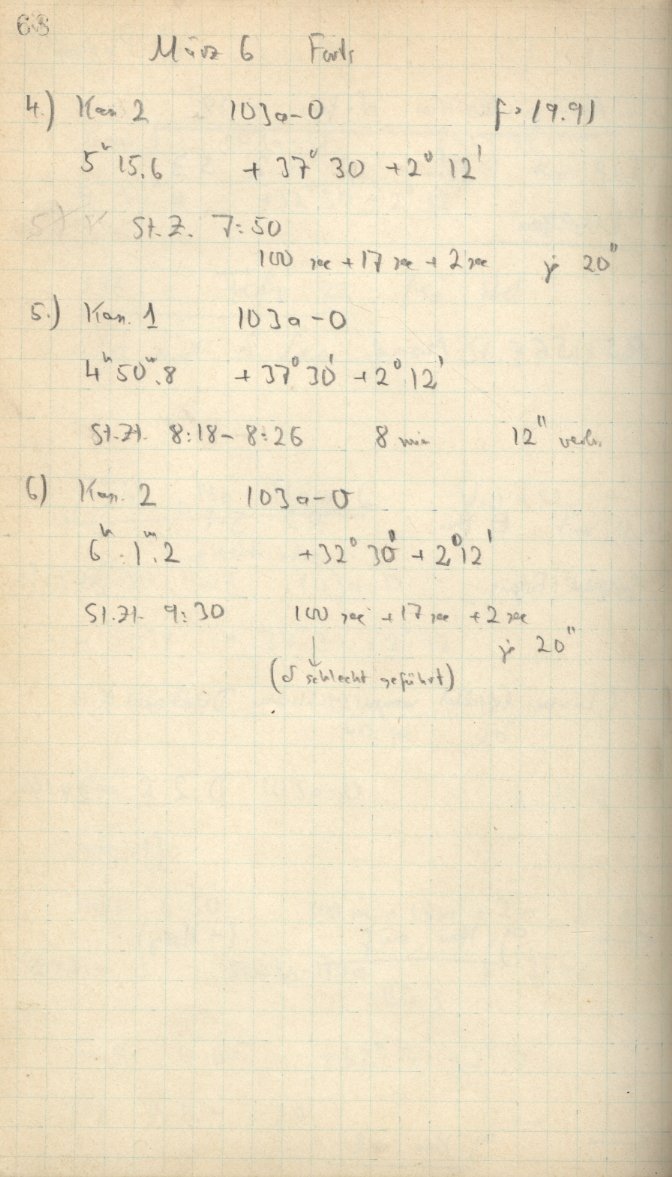 68
März 6
4.) Kam 2 103a-O f = 19.91
5ʰ 15.6 + 37° 30 + 2° 12'
St. Z. 7:50
100 sec + 17 sec + 2 sec je 20"
5.) Kam. 1 103a-O
4ʰ 50ᵐ.8 + 37° 30' + 2° 12'
St.Zt. 8:18 - 8:26 8 min 12"
6) Kam. 2 103a-O
6ʰ 1ᵐ.2 + 32° 30' + 2° 12'
St.Zt. 9:30 100 sec + 17 sec + 2 sec
je 20"
(δ schlecht geführt)